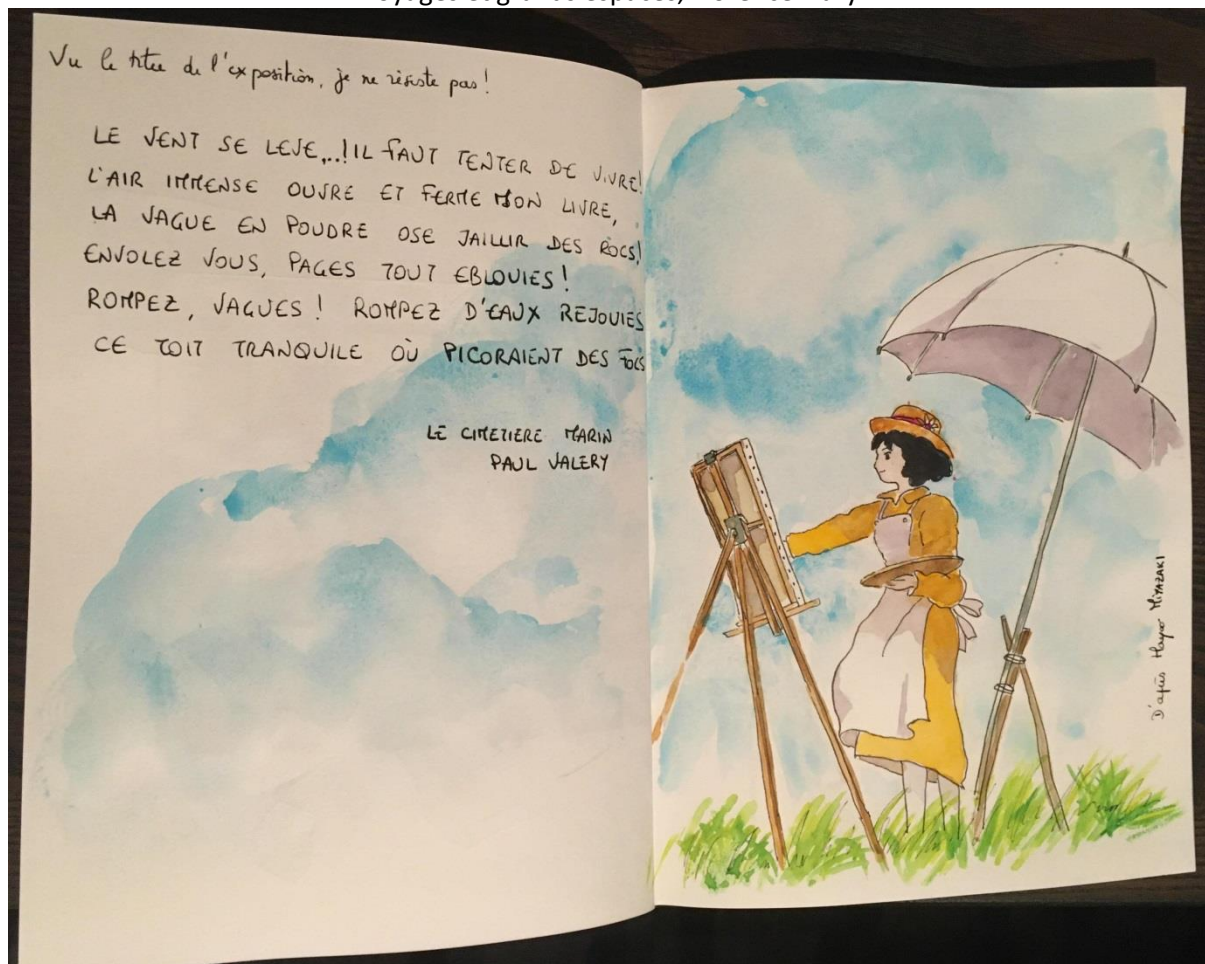 Vu le titre de l'exposition, je ne résiste pas !
LE VENT SE LEVE,..! IL FAUT TENTER DE VIVRE!
L'AIR IMMENSE OUVRE ET FERME MON LIVRE,
LA VAGUE EN POUDRE OSE JAILLIR DES ROCS!
ENVOLEZ VOUS, PAGES TOUT EBLOUIES !
ROMPEZ, VAGUES ! ROMPEZ D'EAUX REJOUIES
CE TOIT TRANQUILE OÙ PICORAIENT DES FOCS
LE CIMETIERE MARIN
PAUL VALERY
D'après Hayao MIYAZAKI